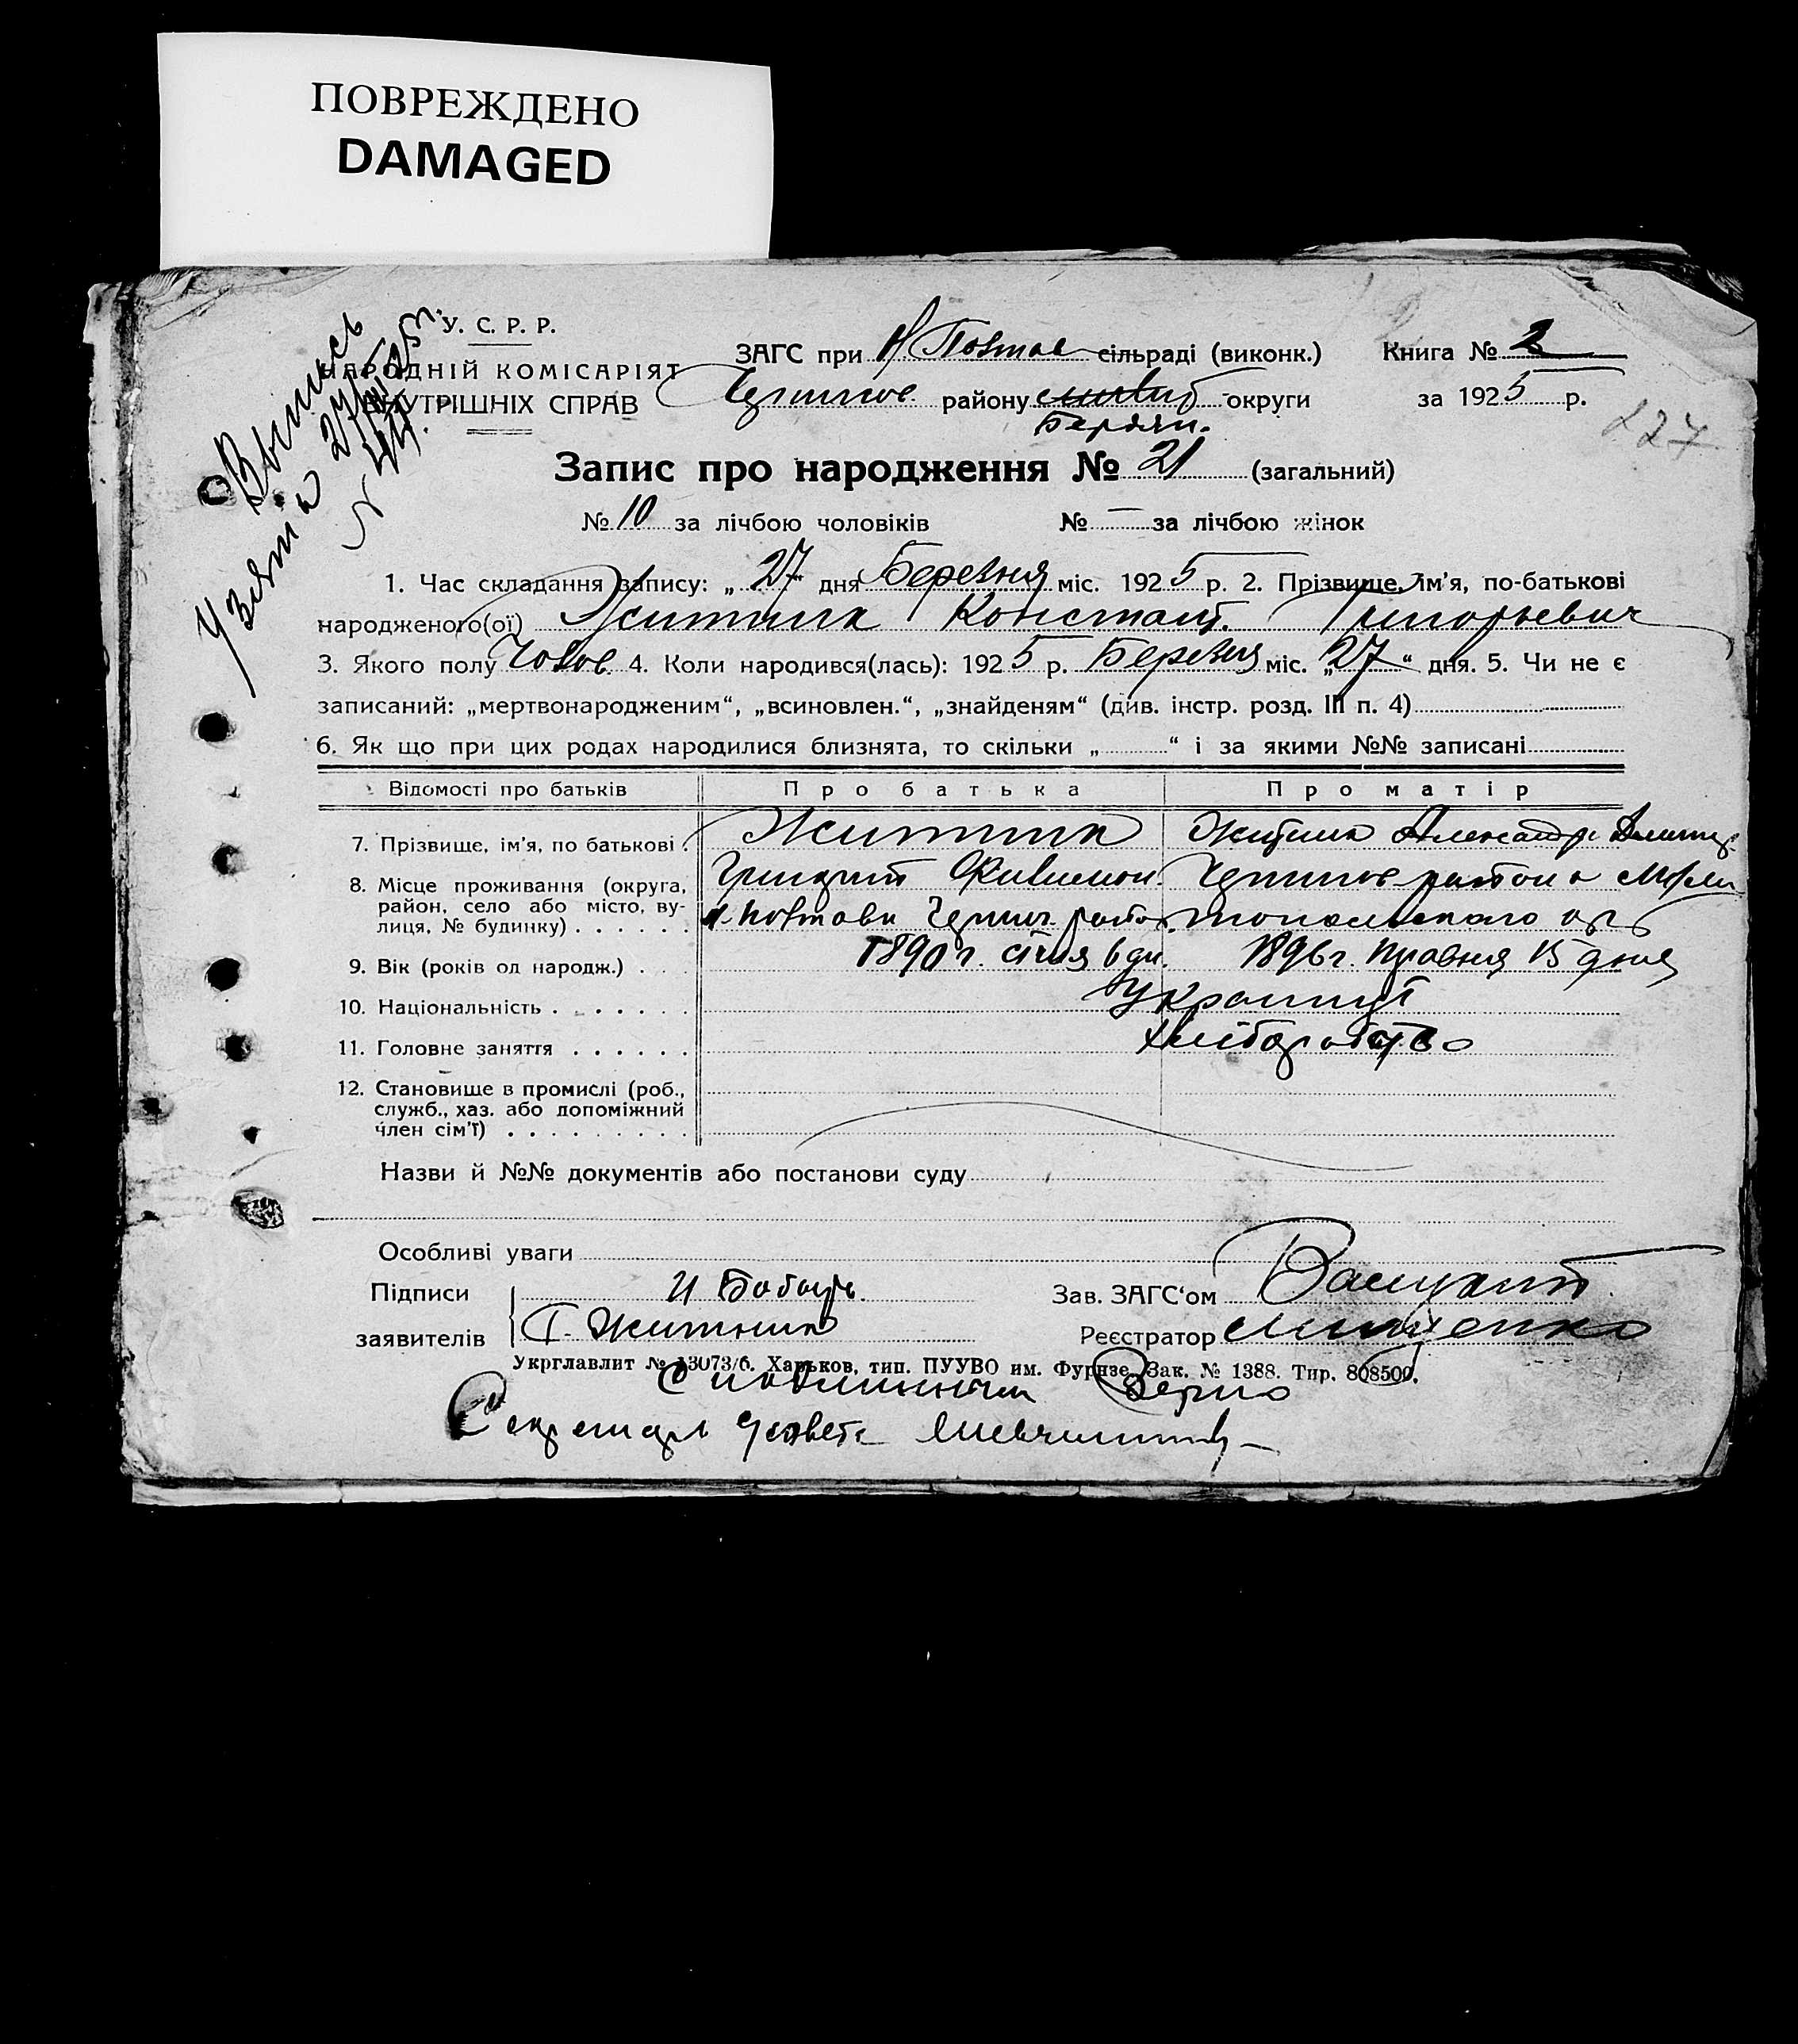 ПОВРЕЖДЕНО
DAMAGED
У. С. Р. Р.
НАРОДНІЙ КОМІСАРІЯТ
ВНУТРІШНІХ СПРАВ
Выпись
Узята
ЗАГС при Н Повтав сільраді (виконк.)
Книга № 2
району округи
Бердян.
за 1925 р.
227
Запис про народження № 21 (загальний)
№ 10 за лічбою чоловіків № — за лічбою жінок
1. Час складання запису: „ 27 “ дня Березня міс. 1925 р. 2. Прізвище, ім'я, по-батькові
народженого(ої) Житник Констант. Григорьевич
3. Якого полу Чолов. 4. Коли народився(лась): 1925 р. Березня міс. „ 27 “ дня. 5. Чи не є
записаний: „мертвонародженим“, „всиновлен.“, „знайденям“ (див. інстр. розд. III п. 4)
6. Як що при цих родах народилися близнята, то скільки „ “ і за якими №№ записані
Відомості про батьків Про батька Про матір
7. Прізвище, ім'я, по батькові Житник Житник Александр
8. Місце проживання (округа, район, село або місто, вулиця, № будинку)
Григорий Филимон.
Н-Повтавки Черниг. район
9. Вік (років од народж.) 1890 г. січня 6 дн. 1896 г. Травня 15 дня
10. Національність
11. Головне заняття Хліборобство
12. Становище в промислі (роб.,
служб., хаз. або допоміжний
член сім'ї)
Назви й №№ документів або постанови суду
Особливі уваги
Підписи
заявителів Г. Житник
Зав. ЗАГС‘ом
Реєстратор
Укрглавлит № 13073/6. Харьков, тип. ПУУВО им. Фурнзе. Зак. № 1388. Тир. 808500.
С подлинным Верно
Секретарь